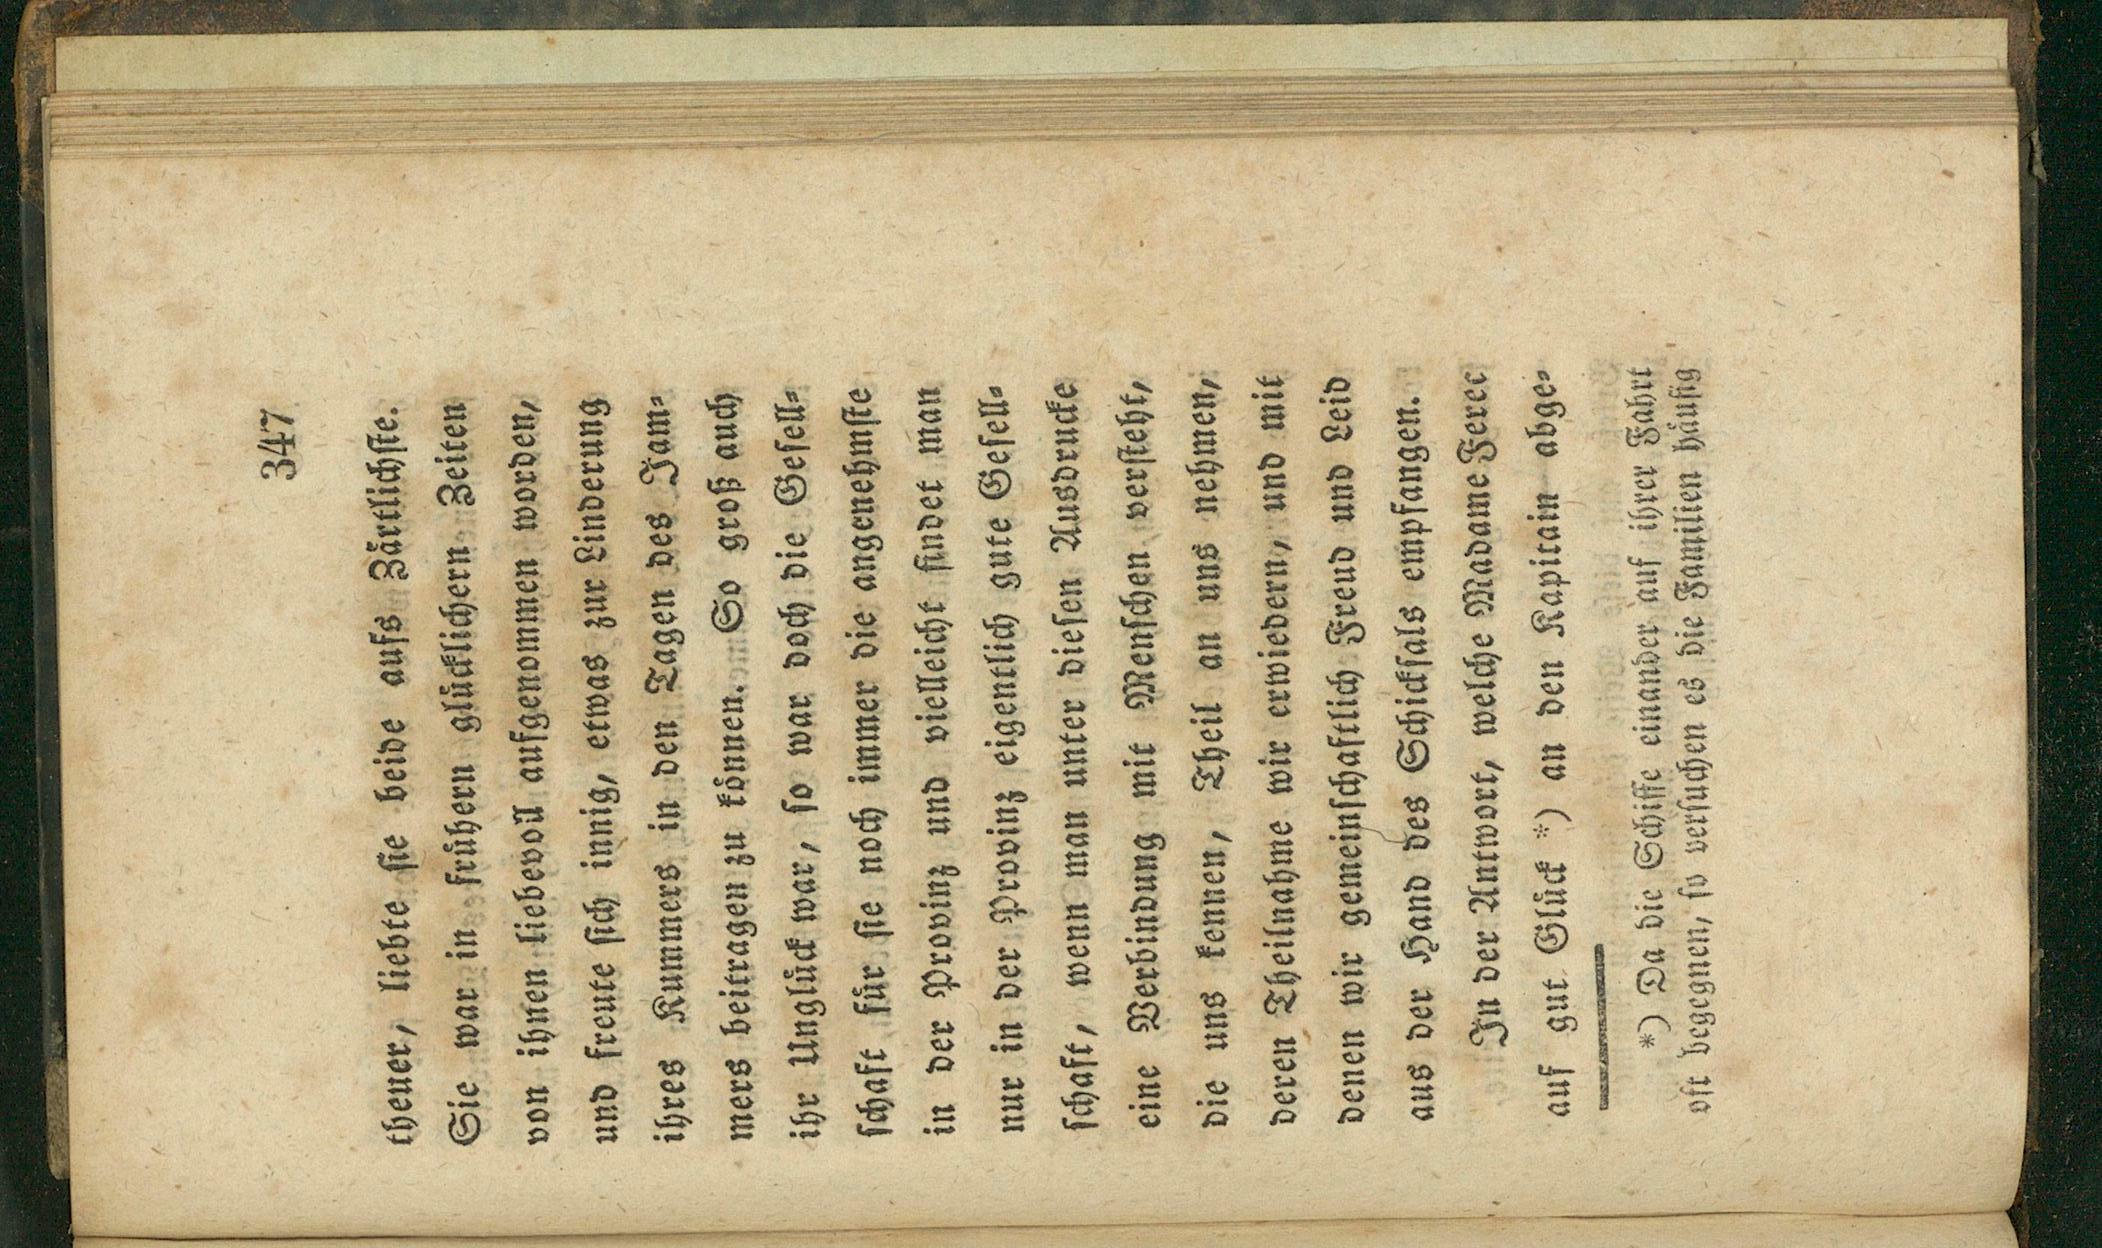 347
theuer, liebte sie beide aufs Zärtlichste.
Sie war in frühern glücklichern Zeiten
von ihnen liebevoll aufgenommen worden,
und freute sich innig, etwas zur Linderung
ihres Kummers in den Tagen des Jam-
mers beitragen zu können. So groß auch
ihr Unglück war, so war doch die Gesell-
schaft für sie noch immer die angenehmste
in der Provinz und vielleicht findet man
nur in der Provinz eigentlich gute Gesell-
schaft, wenn man unter diesen Ausdrucke
eine Verbindung mit Menschen versteht,
die uns kennen, Theil an uns nehmen,
deren Theilnahme wir erwiedern, und mit
denen wir gemeinschaftlich Freud und Leid
aus der Hand des Schicksals empfangen.
In der Antwort, welche Madame Feree
auf gut Glück *) an den Kapitain abge-
*) Da die Schiffe einander auf ihrer Fahrt
oft begegnen, so versuchen es die Familien häufig